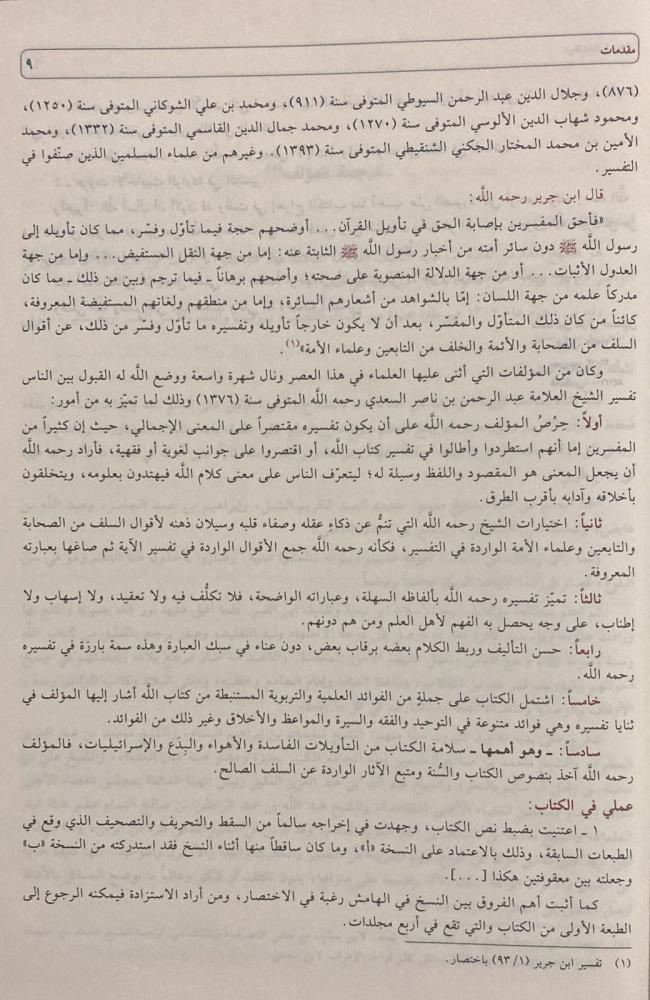 مقدمات
٩
(٨٧٦)، وجلال الدين عبد الرحمن السيوطي المتوفى سنة (٩١١)، ومحمد بن علي الشوكاني المتوفى سنة (١٢٥٠)،
ومحمود شهاب الدين الألوسي المتوفى سنة (١٢٧٠)، ومحمد جمال الدين القاسمي المتوفى سنة (١٣٣٢)، ومحمد
الأمين بن محمد المختار الجكني الشنقيطي المتوفى سنة (١٣٩٣). وغيرهم من علماء المسلمين الذين صنّفوا في
التفسير.
قال ابن جرير رحمه اللَّه:
«فأحق المفسرين بإصابة الحق في تأويل القرآن... أوضحهم حجة فيما تأوّل وفسّر، مما كان تأويله إلى
رسول اللَّه ﷺ دون سائر أمته من أخبار رسول اللَّه ﷺ الثابتة عنه: إما من جهة النقل المستفيض... وإما من جهة
العدول الأثبات... أو من جهة الدلالة المنصوبة على صحته؛ وأصحهم برهاناً ـ فيما ترجم وبين من ذلك ـ مما كان
مدركاً علمه من جهة اللسان: إمّا بالشواهد من أشعارهم السائرة، وإما من منطقهم ولغاتهم المستفيضة المعروفة،
كائناً من كان ذلك المتأوّل والمفسّر، بعد أن لا يكون خارجاً تأويله وتفسيره ما تأوّل وفسّر من ذلك، عن أقوال
السلف من الصحابة والأئمة والخلف من التابعين وعلماء الأمة»(١).
وكان من المؤلفات التي أثنى عليها العلماء في هذا العصر ونال شهرة واسعة ووضع اللَّه له القبول بين الناس
تفسير الشيخ العلامة عبد الرحمن بن ناصر السعدي رحمه اللَّه المتوفى سنة (١٣٧٦) وذلك لما تميّز به من أمور:
أولاً: حِرْصُ المؤلف رحمه اللَّه على أن يكون تفسيره مقتصراً على المعنى الإجمالي، حيث إن كثيراً من
المفسرين إما أنهم استطردوا وأطالوا في تفسير كتاب اللَّه، أو اقتصروا على جوانب لغوية أو فقهية، فأراد رحمه اللَّه
أن يجعل المعنى هو المقصود واللفظ وسيلة له؛ ليتعرّف الناس على معنى كلام اللَّه فيهتدون بعلومه، ويتخلقون
بأخلاقه وآدابه بأقرب الطرق.
ثانياً: اختيارات الشيخ رحمه اللَّه التي تنمُّ عن ذكاءِ عقله وصفاء قلبه وسيلان ذهنه لأقوال السلف من الصحابة
والتابعين وعلماء الأمة الواردة في التفسير، فكأنه رحمه اللَّه جمع الأقوال الواردة في تفسير الآية ثم صاغها بعبارته
المعروفة.
ثالثاً: تميّز تفسيره رحمه اللَّه بألفاظه السهلة، وعباراته الواضحة، فلا تكلُّف فيه ولا تعقيد، ولا إسهاب ولا
إطناب، على وجه يحصل به الفهم لأهل العلم ومن هم دونهم.
رابعاً: حسن التأليف وربط الكلام بعضه برقاب بعض، دون عناء في سبك العبارة وهذه سمة بارزة في تفسيره
رحمه اللَّه.
خامساً: اشتمل الكتاب على جملةٍ من الفوائد العلمية والتربوية المستنبطة من كتاب اللَّه أشار إليها المؤلف في
ثنايا تفسيره وهي فوائد متنوعة في التوحيد والفقه والسيرة والمواعظ والأخلاق وغير ذلك من الفوائد.
سادساً: ـ وهو أهمها ـ سلامة الكتاب من التأويلات الفاسدة والأهواء والبِدَع والإسرائيليات، فالمؤلف
رحمه اللَّه آخذ بنصوص الكتاب والسُّنة ومتبع الآثار الواردة عن السلف الصالح.
عملي في الكتاب:
١ ـ اعتنيت بضبط نص الكتاب، وجهدت في إخراجه سالماً من السقط والتحريف والتصحيف الذي وقع في
الطبعات السابقة، وذلك بالاعتماد على النسخة «أ»، وما كان ساقطاً منها أثناء النسخ فقد استدركته من النسخة «ب»
وجعلته بين معقوفتين هكذا [...].
كما أثبت أهم الفروق بين النسخ في الهامش رغبة في الاختصار، ومن أراد الاستزادة فيمكنه الرجوع إلى
الطبعة الأولى من الكتاب والتي تقع في أربع مجلدات.
(١) تفسير ابن جرير (١/ ٩٣) باختصار.